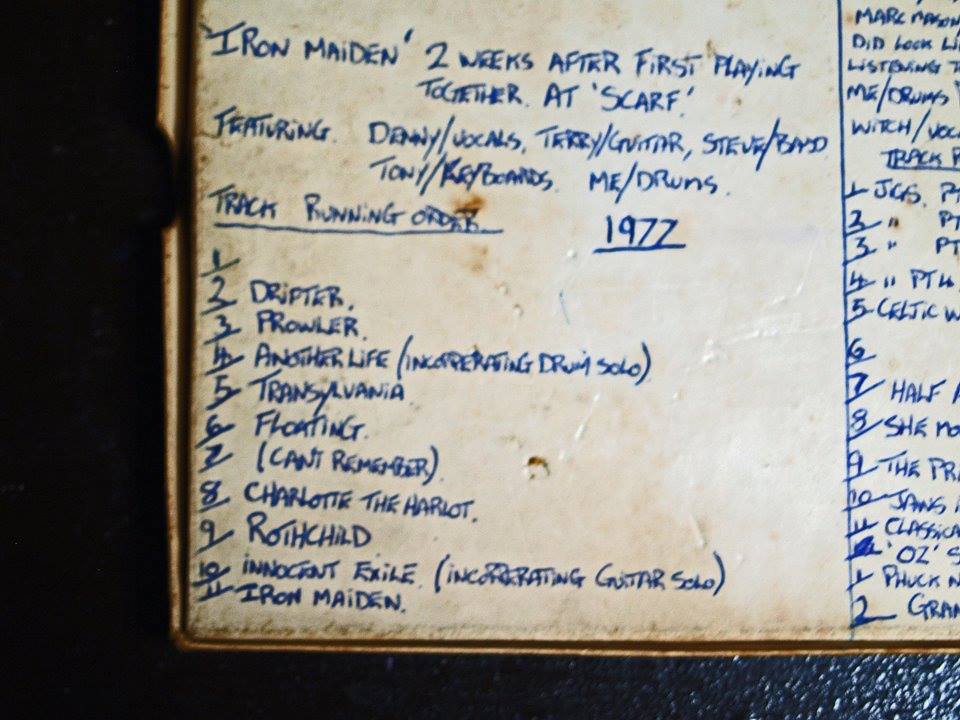 'IRON MAIDEN' 2 WEEKS AFTER FIRST PLAYING
TOGETHER. AT 'SCARF'
FEATURING. DENNY/VOCALS, TERRY/GUITAR, STEVE/BASD
TONY/KEYBOARDS. ME/DRUMS.
TRACK RUNNING ORDER.
1977
1
2 DRIFTER.
3 PROWLER.
4 ANOTHER LIFE (INCOPERATING DRUM SOLO)
5 TRANSYLVANIA
6 FLOATING.
7 (CANT REMEMBER)
8 CHARLOTTE THE HARLOT.
9 ROTHCHILD
10 INNOCENT EXILE. (INCOPERATING GUITAR SOLO)
11 IRON MAIDEN.
MARC MASON
DID LOOK
LISTENING
ME/DRUMS
WITCH/
TRACK
1 JGS. PT
2 " PT
3 " PT
4 " PT 4.
5 CELTIC
6
7 HALF
8 SHE
9 THE
10 JAWS
11 CLASSICA
'OZ' S
1 PHUCK
2 GRAN